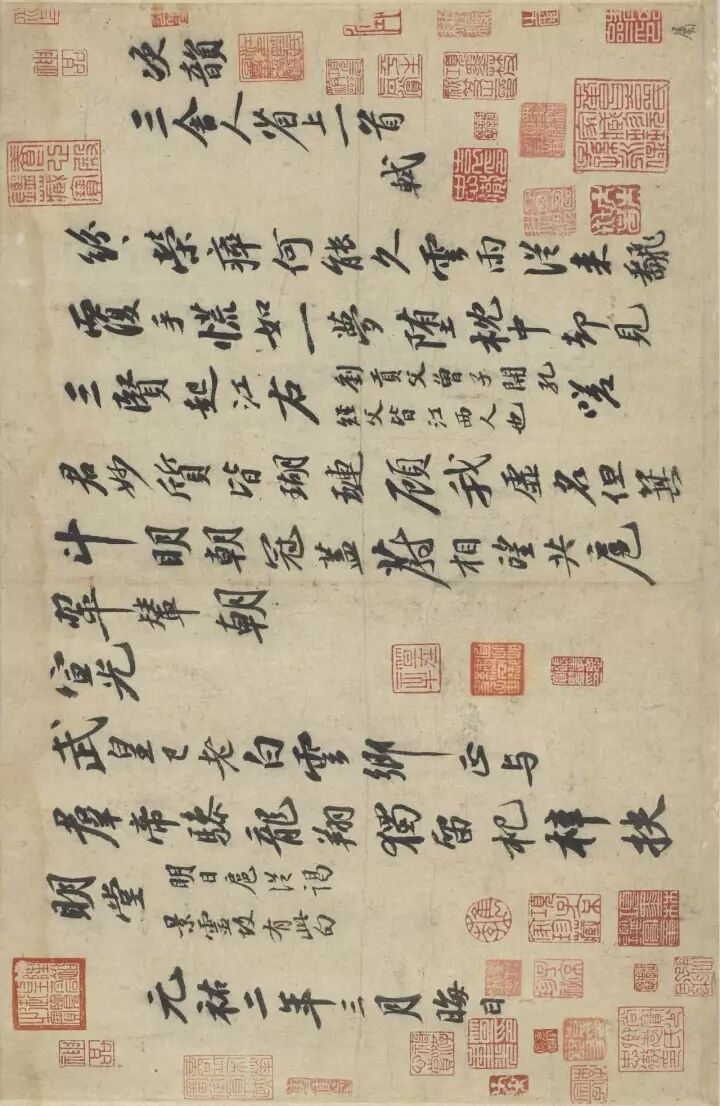 次韻
三舍人省上一首
軾
紛〻榮瘁何能久雲雨從來翻
覆手怳如一夢墮枕中却見
三賢起江右劉貢父曾子開孔經父皆江西人也嗟
君妙質皆瑚璉顧我虛名但箕
斗明朝冠蓋蔚相望共扈
翠輦朝
宣光
武皇已老白雲鄉正与
羣帝驂龍翔獨留杞梓扶
明堂明日扈從謁景靈故有此句
元祐二年三月晦日